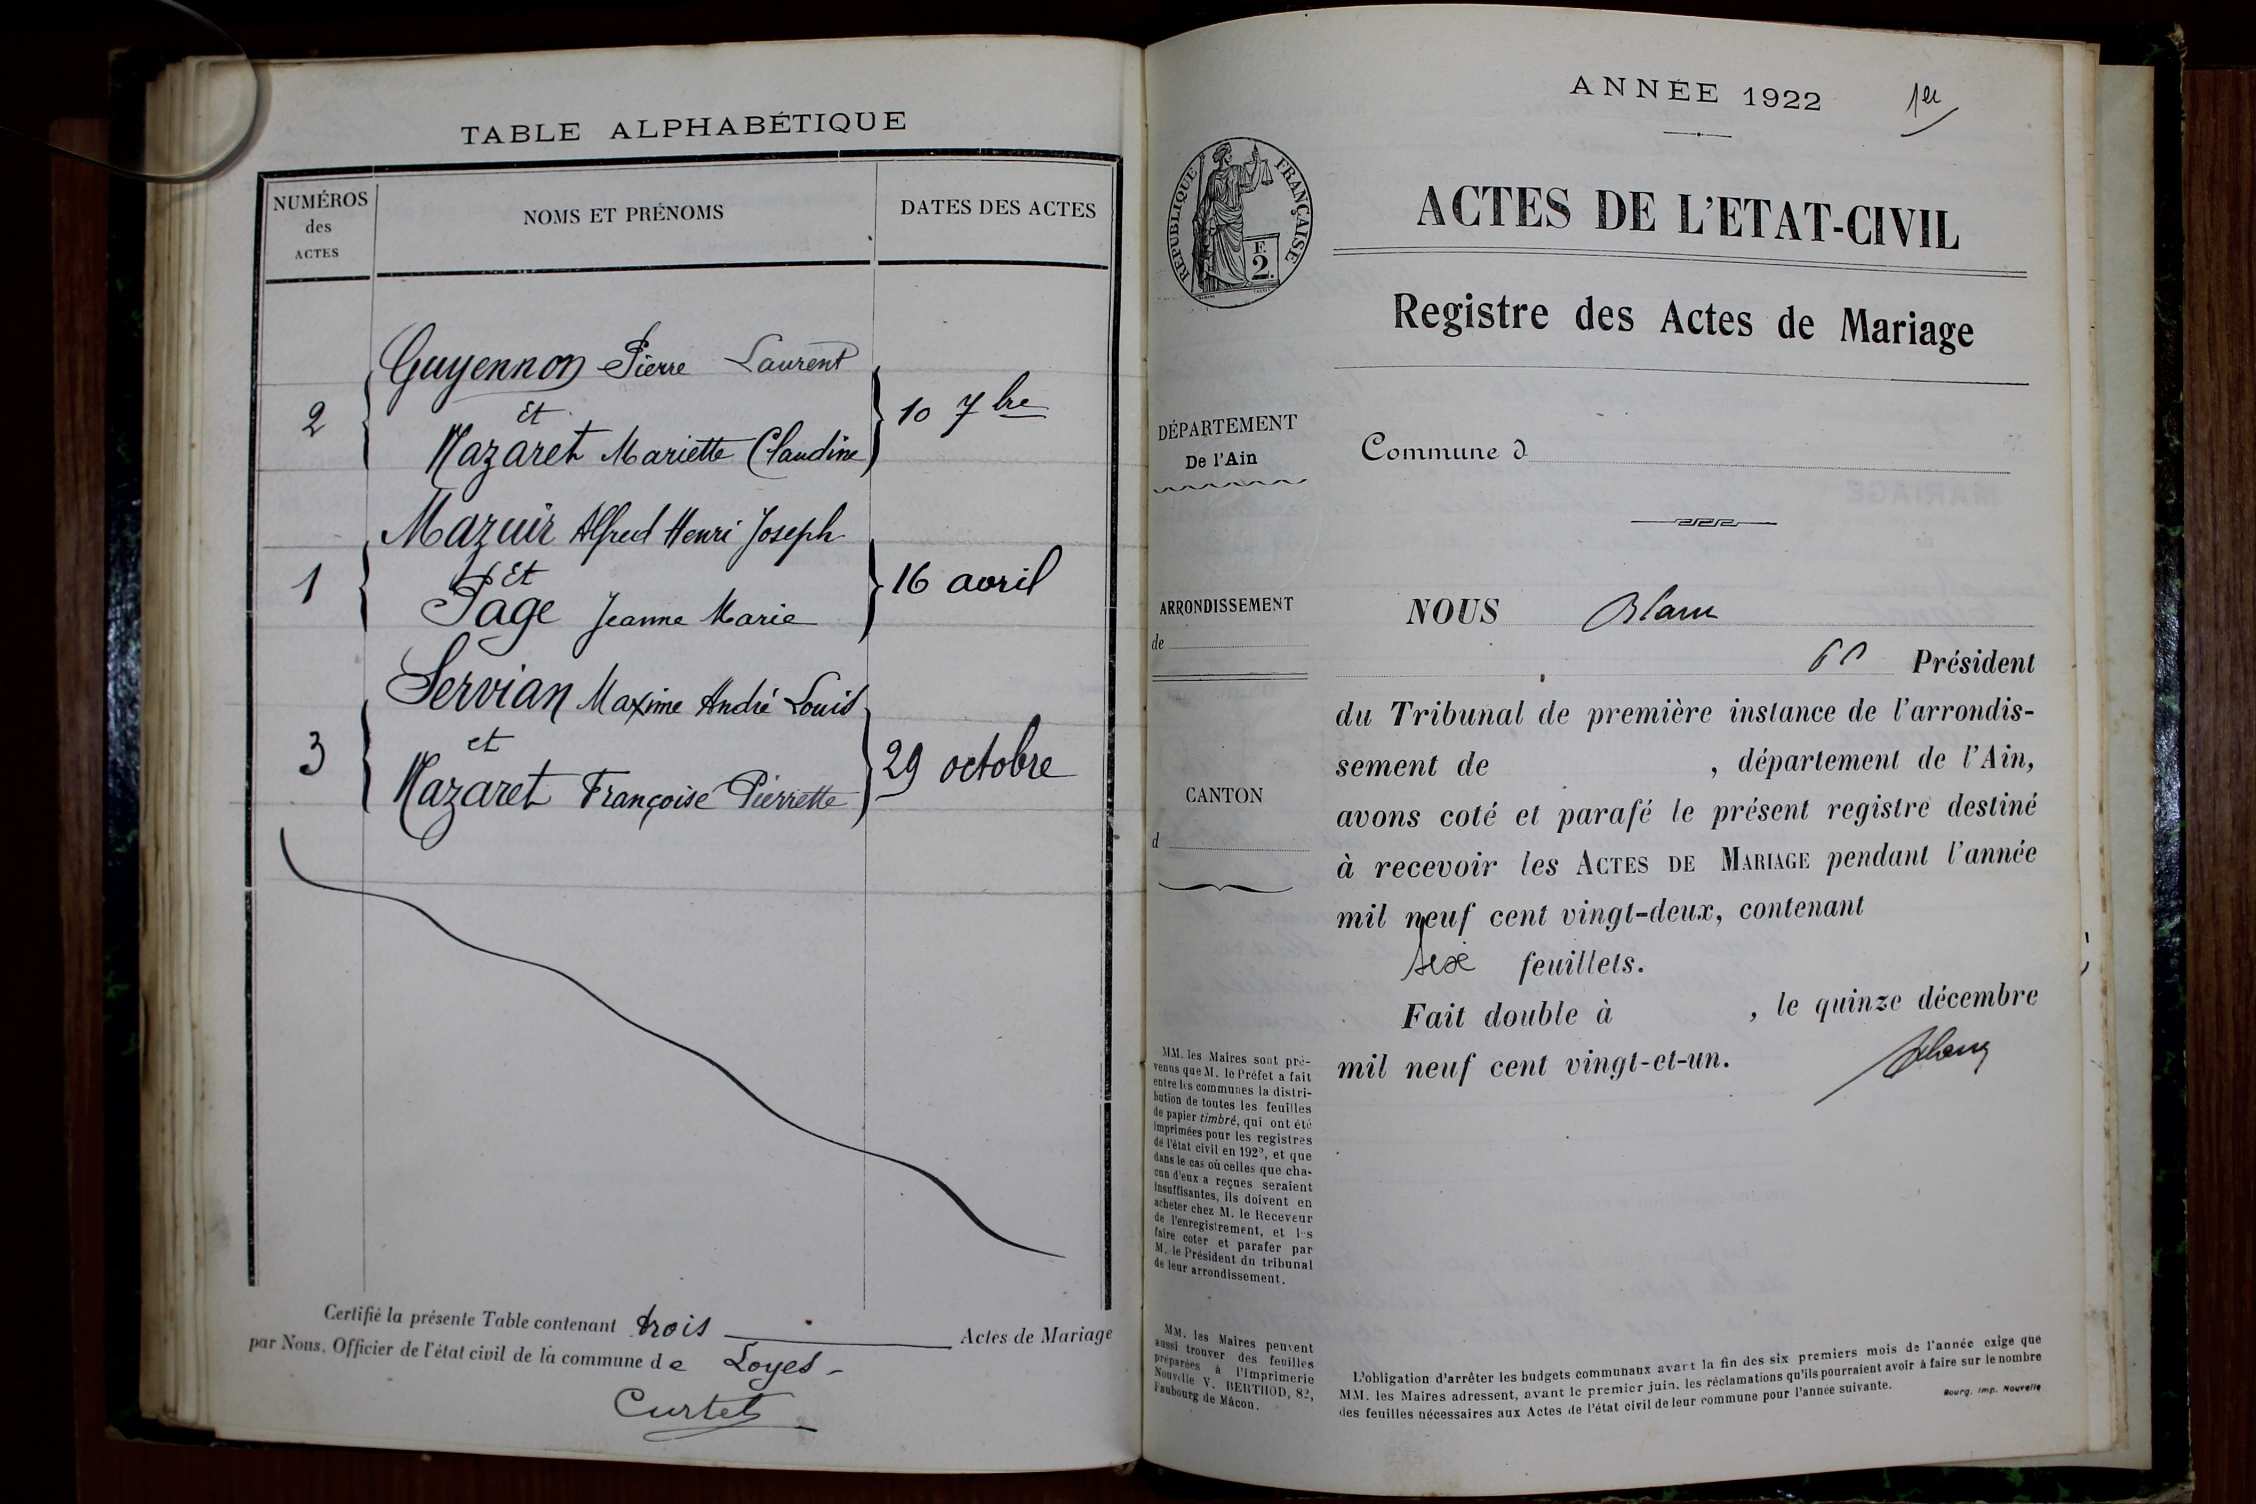 TABLE ALPHABÉTIQUE
NUMÉROS
des
ACTES
NOMS ET PRÉNOMS
DATES DES ACTES
Guyennon Pierre Laurent
2
et
10 7bre
Nazaret Mariette Claudine
Mazuir Alfred Henri Joseph
1
Et
16 avril
Page Jeanne Marie
Servian Maxime André Louis
3
et
29 octobre
Nazaret Françoise Pierrette
Certifié la présente Table contenant trois Actes de Mariage
par Nous, Officier de l'état civil de la commune de Loyes
Curtet
ANNÉE 1922
1er
RÉPUBLIQUE FRANÇAISE
F.
2.
ACTES DE L'ETAT-CIVIL
Registre des Actes de Mariage
DÉPARTEMENT
De l'Ain
Commune d
ARRONDISSEMENT
de
CANTON
d
NOUS
Président
du Tribunal de première instance de l'arrondis-
sement de , département de l'Ain,
avons coté et parafé le présent registre destiné
à recevoir les ACTES DE MARIAGE pendant l'année
mil neuf cent vingt-deux, contenant
six feuillets.
Fait double à , le quinze décembre
mil neuf cent vingt-et-un.
MM. les Maires sont pré-
venus que M. le Préfet a fait
entre les communes la distri-
bution de toutes les feuilles
de papier timbré, qui ont été
imprimées pour les registres
de l'état civil en 192, et que
dans le cas où celles que cha-
cun d'eux a reçues seraient
insuffisantes, ils doivent en
acheter chez M. le Receveur
de l'enregistrement, et les
faire coter et parafer par
M. le Président du tribunal
de leur arrondissement.
MM. les Maires peuvent
aussi trouver des feuilles
préparées à l'Imprimerie
Nouvelle V. BERTHOD, 82,
Faubourg de Mâcon.
L'obligation d'arrêter les budgets communaux avart la fin des six premiers mois de l'année exige que
MM. les Maires adressent, avant le premier juin, les réclamations qu'ils pourraient avoir à faire sur le nombre
des feuilles nécessaires aux Actes de l'état civil de leur commune pour l'année suivante.
Bourg. Imp. Nouvelle